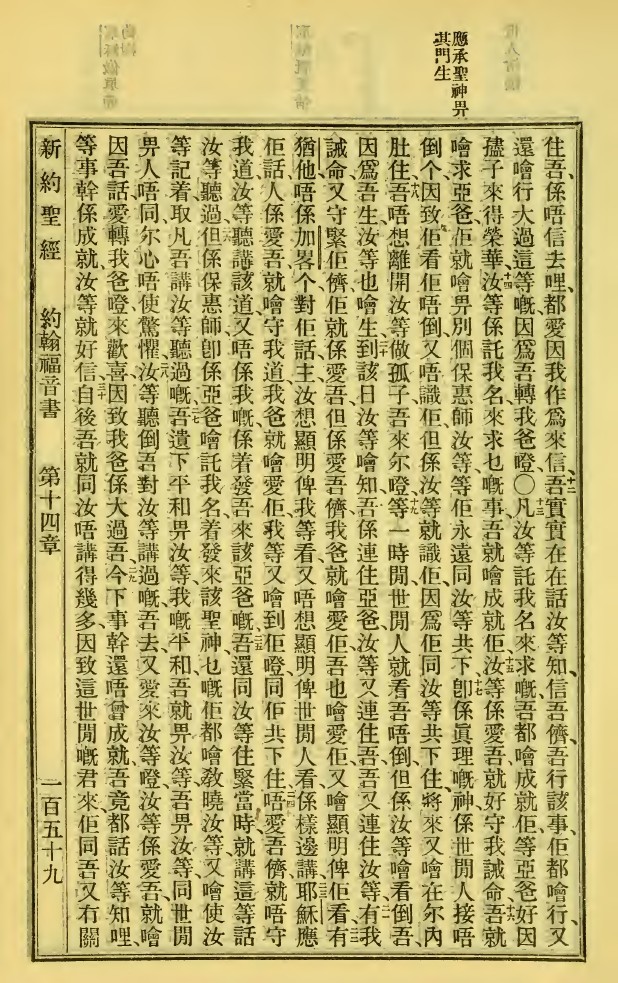 應承聖神畀
其門生
住吾、係唔信去哩、都愛因我作爲來信、十二吾實實在在話汝等知、信吾儕、吾行該事、佢都噲行、又
還噲行大過這等嘅、因爲吾轉我爸嶝、〇十三凡汝等託我名來求嘅、吾都噲成就佢等亞爸好因
孻子來得榮華、十四汝等係託我名來求乜嘅事、吾就噲成就佢、十五汝等係愛吾、就好守我誡命、十六吾就
噲求亞爸、佢就噲畀別個保惠師汝等、等佢永遠同汝等共下、十七卽係眞理嘅神、係世閒人接唔
倒个、因致佢看佢唔倒、又唔識佢、但係汝等就識佢、因爲佢同汝等共下住、將來又噲在尔內
肚住、十八吾唔想離開汝等做孤子、吾來尔嶝、十九等一時閒、世閒人就看吾唔倒、但係汝等噲看倒吾、
因爲吾生、汝等也噲生、二十到該日、汝等噲知、吾係連住亞爸、汝等又連住吾、吾又連住汝等、二一有我
誡命又守緊佢儕、佢就係愛吾、但係愛吾儕、我爸就噲愛佢、吾也噲愛佢、又噲顯明俾佢看、二二有
猶他唔係加畧个、對佢話、主、汝想顯明俾我等看、又唔想顯明俾世閒人看、係樣邊講、二三耶穌應
佢話、人係愛吾、就噲守我道、我爸就噲愛佢、我等又噲到佢嶝、同佢共下住、二四唔愛吾儕、就唔守
我道、汝等聽講該道、又唔係我嘅、係着發吾來該亞爸嘅、二五吾還同汝等住緊當時、就講這等話
汝等聽過、二六但係保惠師、卽係亞爸噲託我名着發來該聖神、乜嘅佢都噲敎曉汝等、又噲使汝
等記着取凡吾講汝等聽過嘅、二七吾遺下平和畀汝等、我嘅平和、吾就畀汝等、吾畀汝等、同世閒
畀人唔同、尔心唔使驚懼、二八汝等聽倒吾對汝等講過嘅、吾去又愛來汝等嶝、汝等係愛吾、就噲
因吾話愛轉我爸嶝來歡喜、因致我爸係大過吾、二九今下事幹還唔曾成就、吾竟都話汝等知哩、
等事幹係成就、汝等就好信、三十自後吾就同汝唔講得幾多、因致這世閒嘅君來、佢同吾又有關
新約聖經　約翰福音書　第十四章　一百五十九